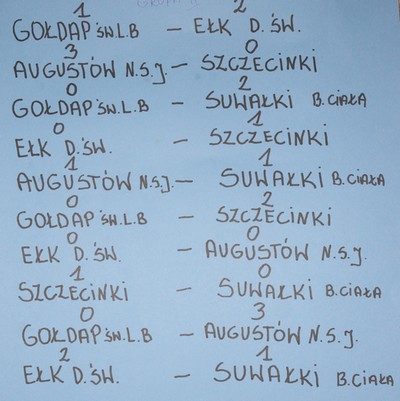 1 2
GOŁDAP ŚW.L.B – EŁK D. ŚW.
3 0
AUGUSTÓW N.S.J. – SZCZECINKI
0 2
GOŁDAP ŚW.L.B – SUWAŁKI B. CIAŁA
0 1
EŁK D. ŚW. – SZCZECINKI
1 1
AUGUSTÓW N.S.J. – SUWAŁKI B. CIAŁA
0 2
GOŁDAP ŚW.L.B – SZCZECINKI
0 0
EŁK D. ŚW. – AUGUSTÓW N.S.J.
1 0
SZCZECINKI – SUWAŁKI B. CIAŁA
0 3
GOŁDAP ŚW.L.B – AUGUSTÓW N.S.J.
2 1
EŁK D. ŚW. – SUWAŁKI B. CIAŁA